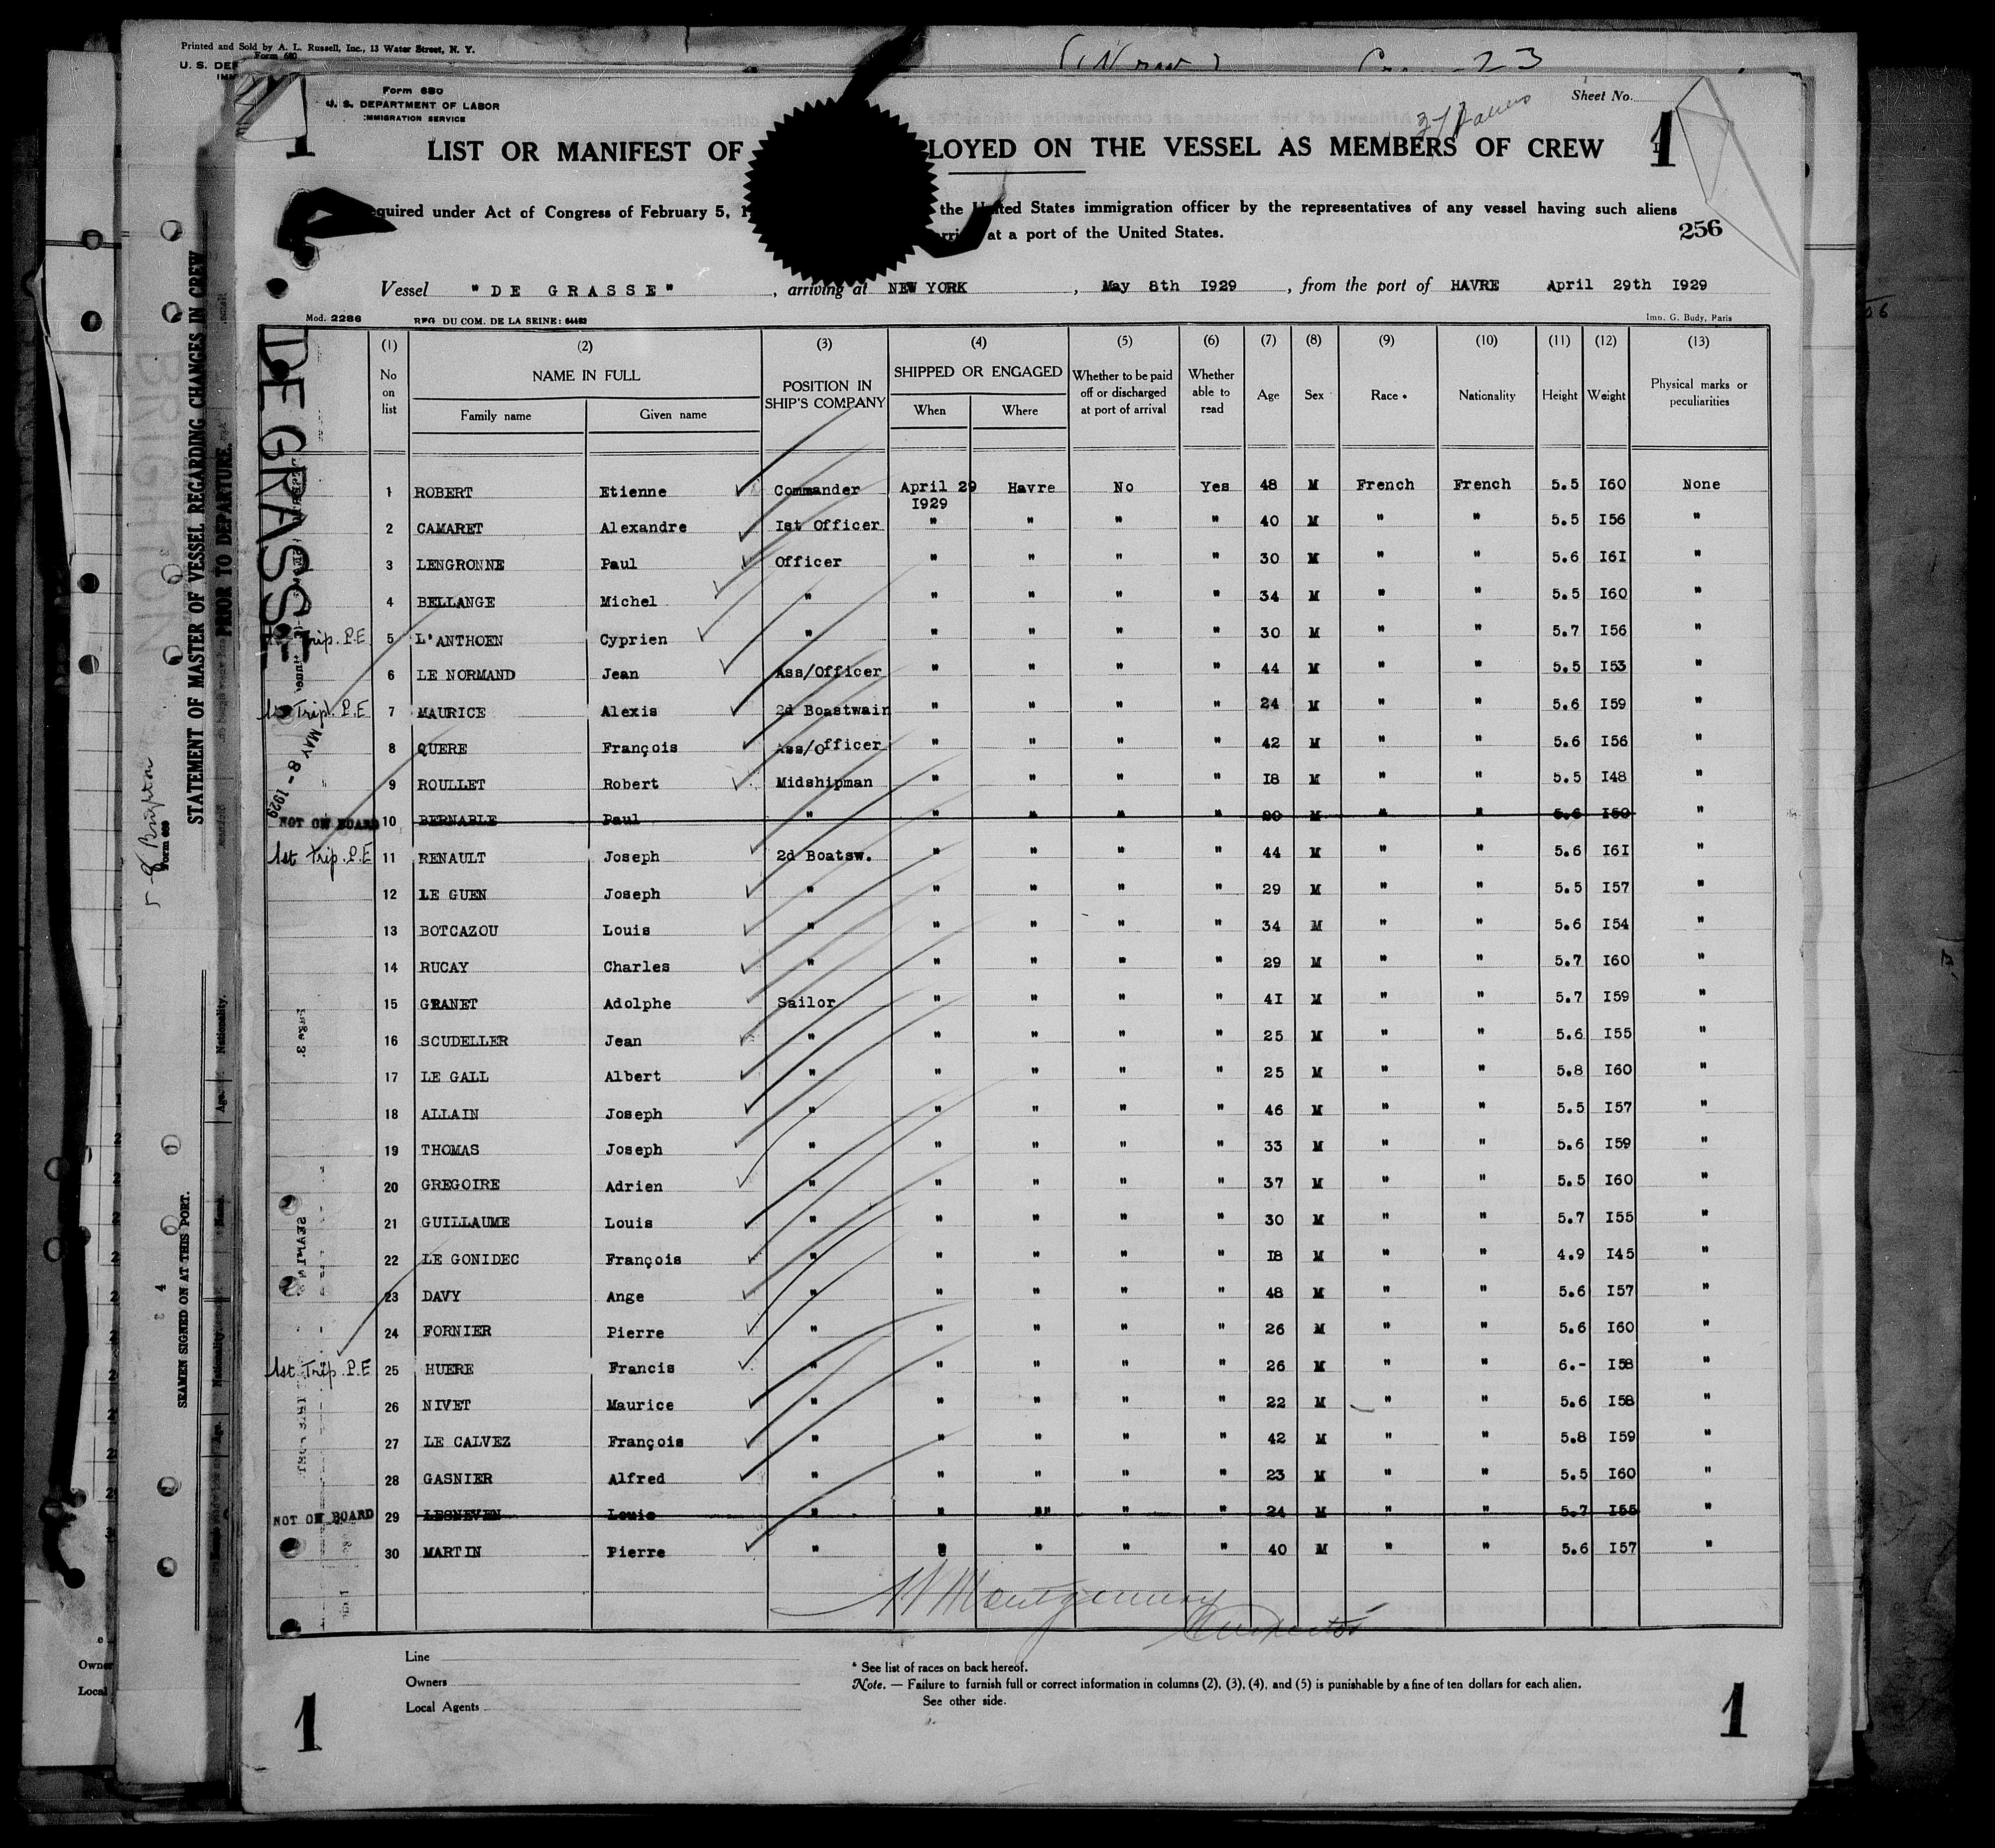 Printed and Sold by A. L. Russell, Inc., 13 Water Street, N. Y.
Form 680
U. S. DEP
Form 680
U. S. DEPARTMENT OF LABOR
IMMIGRATION SERVICE
Sheet No.
1
1
LIST OR MANIFEST OF LOYED ON THE VESSEL AS MEMBERS OF CREW
equired under Act of Congress of February 5, 1 the United States immigration officer by the representatives of any vessel having such aliens
at a port of the United States.
256
Vessel "DE GRASSE", arriving at NEW YORK, May 8th 1929, from the port of HAVRE April 29th 1929
Mod. 2286 REG. DU COM. DE LA SEINE: 64483 Imp. G. Budy, Paris
(1) (2) (3) (4) (5) (6) (7) (8) (9) (10) (11) (12) (13)
No on list NAME IN FULL Family name Given name POSITION IN SHIP'S COMPANY SHIPPED OR ENGAGED When Where Whether to be paid off or discharged at port of arrival Whether able to read Age Sex Race * Nationality Height Weight Physical marks or peculiarities
1 ROBERT Etienne Commander April 29 1929 Havre No Yes 48 M French French 5.5 I60 None
2 CAMARET Alexandre Ist Officer " " " " 40 M " " 5.5 I56 "
3 LENGRONNE Paul Officer " " " " 30 M " " 5.6 I6I "
4 BELLANGE Michel " " " " " 34 M " " 5.5 I60 "
Trip. P.E 5 L'ANTHOEN Cyprien " " " " " 30 M " " 5.7 I56 "
6 LE NORMAND Jean Ass/Officer " " " " 44 M " " 5.5 I53 "
1st Trip. P.E 7 MAURICE Alexis 2d Boastwain " " " " 24 M " " 5.6 I59 "
8 QUERE François Ass/Officer " " " " 42 M " " 5.6 I56 "
9 ROULLET Robert Midshipman " " " " I8 M " " 5.5 I48 "
NOT ON BOARD 10 BERNABLE Paul " " " " " 20 M " " 5.6 I50 "
1st Trip. P.E 11 RENAULT Joseph 2d Boatsw. " " " " 44 M " " 5.6 I6I "
12 LE GUEN Joseph " " " " " 29 M " " 5.5 I57 "
13 BOTCAZOU Louis " " " " " 34 M " " 5.6 I54 "
14 RUCAY Charles " " " " " 29 M " " 5.7 I60 "
15 GRANET Adolphe Sailor " " " " 4I M " " 5.7 I59 "
16 SCUDELLER Jean " " " " " 25 M " " 5.6 I55 "
17 LE GALL Albert " " " " " 25 M " " 5.8 I60 "
18 ALLAIN Joseph " " " " " 46 M " " 5.5 I57 "
19 THOMAS Joseph " " " " " 33 M " " 5.6 I59 "
20 GREGOIRE Adrien " " " " " 37 M " " 5.5 I60 "
21 GUILLAUME Louis " " " " " 30 M " " 5.7 I55 "
22 LE GONIDEC François " " " " " I8 M " " 4.9 I45 "
23 DAVY Ange " " " " " 48 M " " 5.6 I57 "
24 FORNIER Pierre " " " " " 26 M " " 5.6 I60 "
1st Trip. P.E 25 HUERE Francis " " " " " 26 M " " 6.- I58 "
26 NIVET Maurice " " " " " 22 M " " 5.6 I58 "
27 LE CALVEZ François " " " " " 42 M " " 5.8 I59 "
28 GASNIER Alfred " " " " " 23 M " " 5.5 I60 "
NOT ON BOARD 29 LESNEVEN Louis " " "" " " 24 M " " 5.7 I55 "
30 MARTIN Pierre " " " " " 40 M " " 5.6 I57 "
Line
Owners
Local Agents
* See list of races on back hereof.
Note. — Failure to furnish full or correct information in columns (2), (3), (4), and (5) is punishable by a fine of ten dollars for each alien.
See other side.
1
1
DE GRASSE
MAY 8 - 1929
STATEMENT OF MASTER OF VESSEL REGARDING CHANGES IN CREW
PRIOR TO DEPARTURE.
Form 689
SEAMEN SIGNED ON AT THIS PORT.
Owner
Local